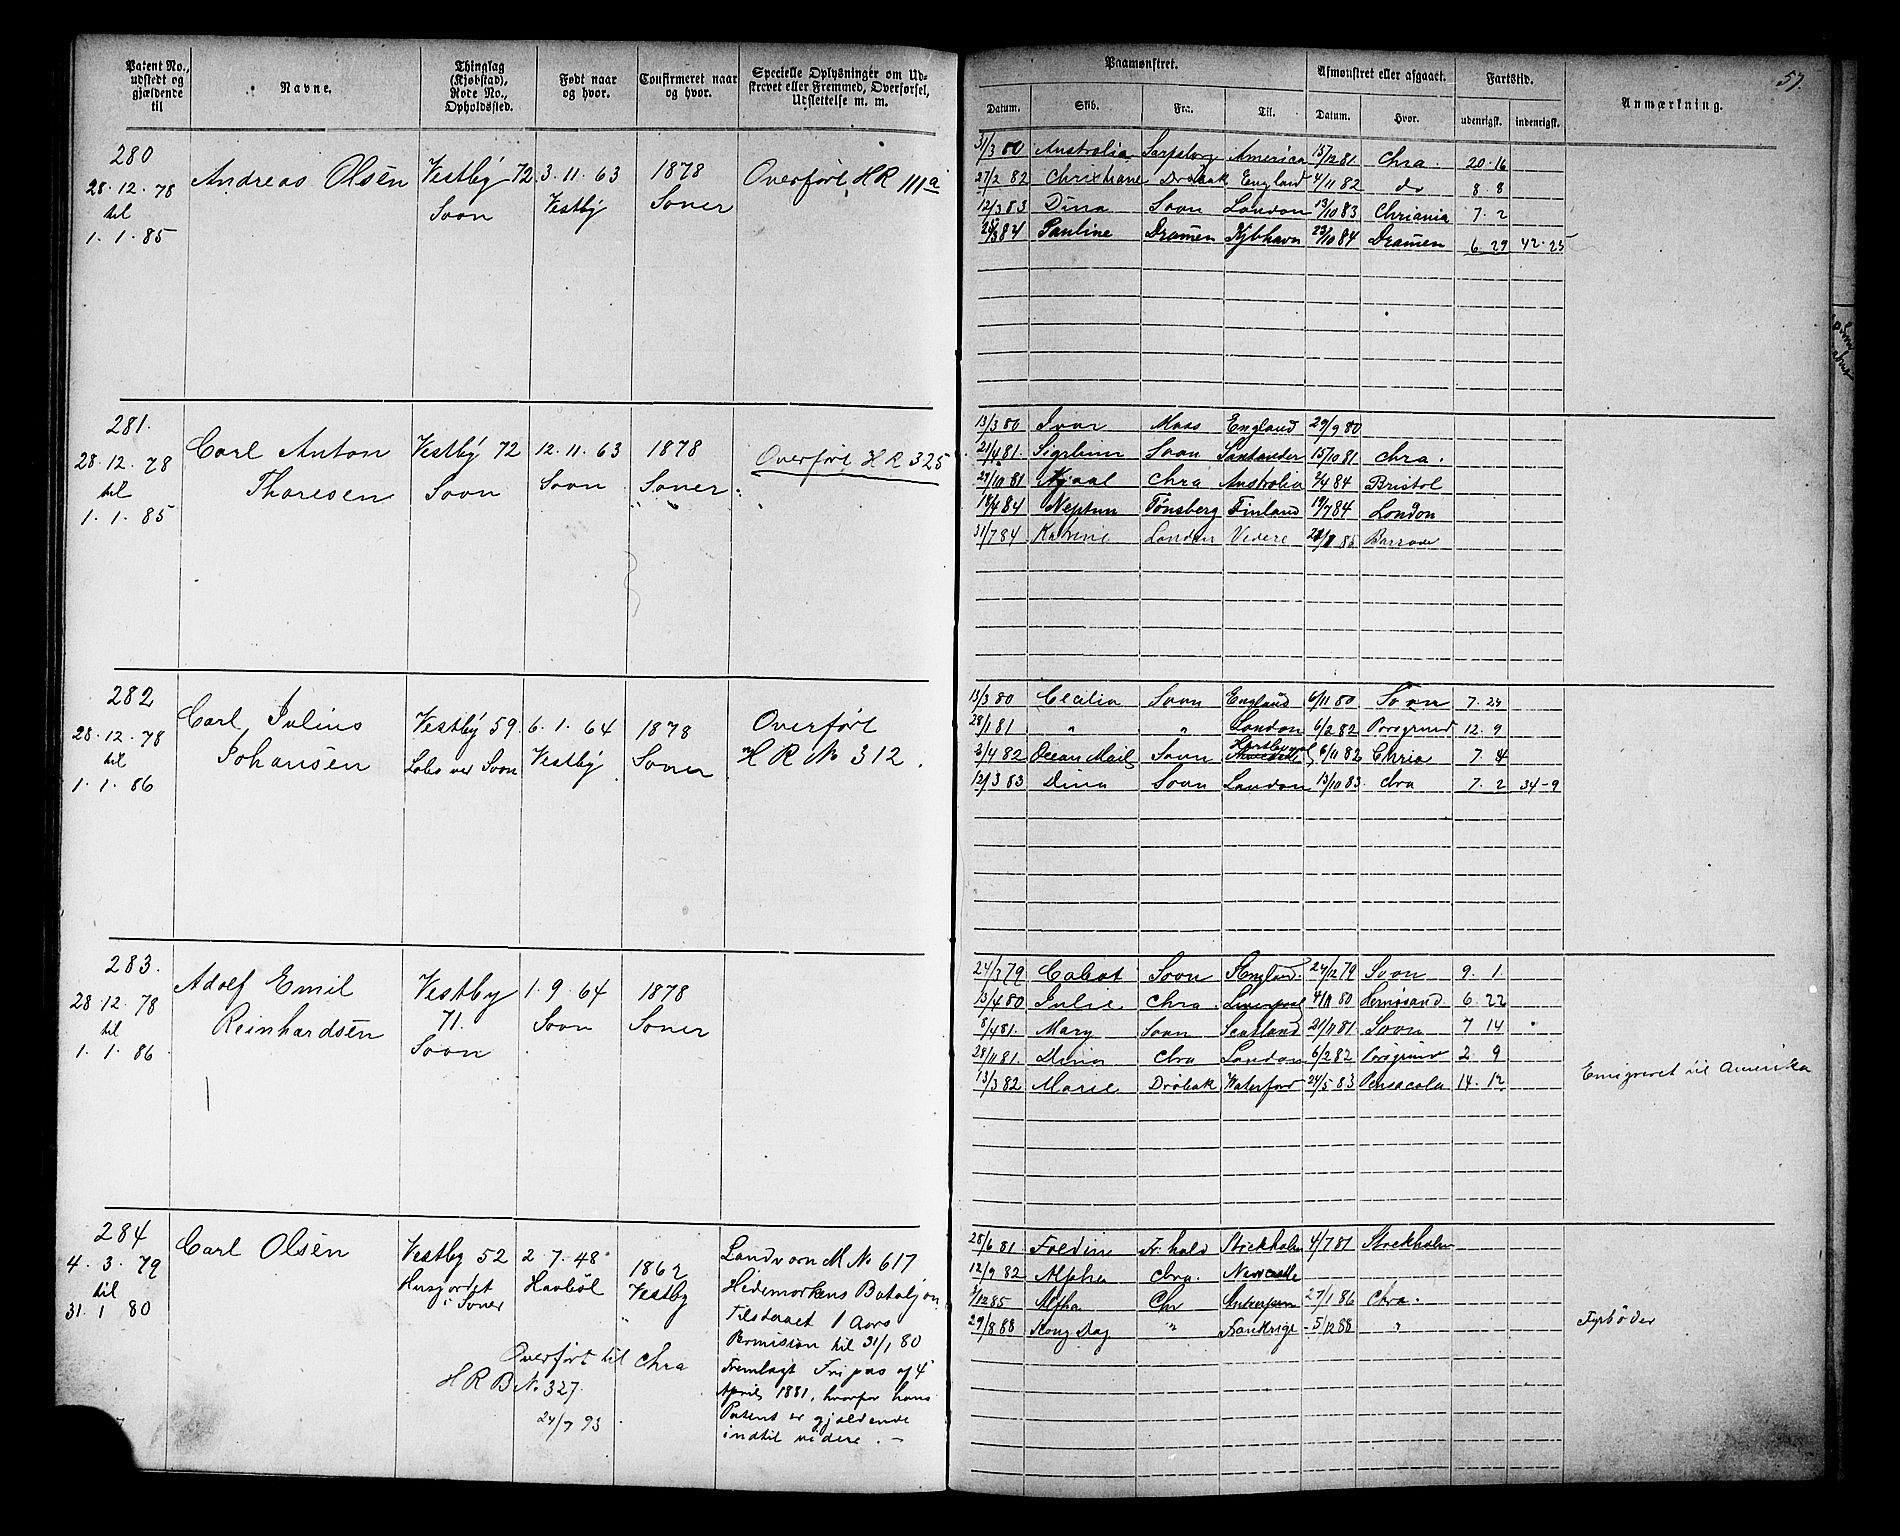 Patent No., udstedt og gjældende til
Navne.
Thinglag (Kjøbstad), Rode No., Opholdssted.
Født naar og hvor.
Confirmeret naar og hvor.
Specielle Oplysninger om Udskrevet eller Fremmed, Overførsel, Udslettelse m. m.
280
28. 12. 78
til
1. 1. 85
Andreas Olsen
Vestby 72
Soon
3. 11. 63
Vestby
1878
Soner
Overført HR 111a
281.
28. 12. 78
til
1. 1. 85
Carl Anton
Thoresen
Vestby 72
Soon
12. 11. 63
Soon
1878
Soner
Overført HR 325
282
28. 12. 78
til
1. 1. 86
Carl Julius
Johansen
Vestby 59
Soon
6. 1. 64
Vestby
1878
Soner
Overført
HR No 312.
283.
28. 12. 78
til
1. 1. 86
Adolf Emil
Reinhardsen
Vestby
71.
Soon
1. 9. 64
Soon
1878
Soner
284
4. 3. 79
til
31. 1 80
Carl Olsen
Vestby 52
i Soner
2. 7. 48
1862
Vestby
Overført til Chra
HRB No. 327.
24/7 93
Landværn M No 617
Hedemarkens Bataljon
Tilstaaet 1 Aars
Permission til 31/1 80
Fremlagt Fripas af 4
April 1881, hvorfor hans
Patent er gjældende
indtil videre. —
Paamønstret.
Afmønstret eller afgaaet.
Fartstid.
Anmærkning.
57.
Datum. Skib. Fra. Til. Datum. Hvor. udenrigsk. indenrigsk.
31/3 80 Australia Sarpsborg America 15/12 81 Chra. 20. 16
27/2 82 Christiane Drøbak England 4/11 82 do 8. 8
12/3 83 Dina Soon London 13/10 83 Chriania 7. 2
84 Pauline Dramen Kjbhavn 23/10 84 Dramen 6. 29 42. 25
13/3 80 Ivar Moss England 29/9 80
21/4 81. Soon Santander 15/10 81 Chra.
29/10 81 Chra Australia 84 Bristol
18/4 84 Neptun Tønsberg Finland 19/7 84 London
31/7 84 Katrine London Videre 85
13/3 80 Cecilia Soon England 6/11 80 Soon 7. 23
28/1 81 " " London 6/2 82 Porsgrund 12. 9
3/4 82 Ocean Soon 6/11 82 Chria 7. 4
12/3 83 Dina Soon London 13/10 83. Chra 7. 2 34-9
24/3 79 Cabot Soon England 24/12 79 Soon 9. 1.
13/4 80 Julie Chra. Liverpool 80 Hernøsand 6. 22
8/4 81. Mary Soon Scotland 21/11 81 Soon 7 14
28/11 81. Dina Chra London 6/2 82 Porsgrund 2. 9
13/3 82 Marie Drøbak Waterford 24/5 83 Pensacola 14. 12
Emigreret til Amerika
25/6 81 Fr.hald Stockholm 4/7 81 Stockholm
12/9 82 Alpha Chra. Newcastle
12 85 Alpha Chr Antwerpen 27/1 86 Chra.
29/8 88 Kong Dag " Frankrige 5/12 88 "
Fyrbøder